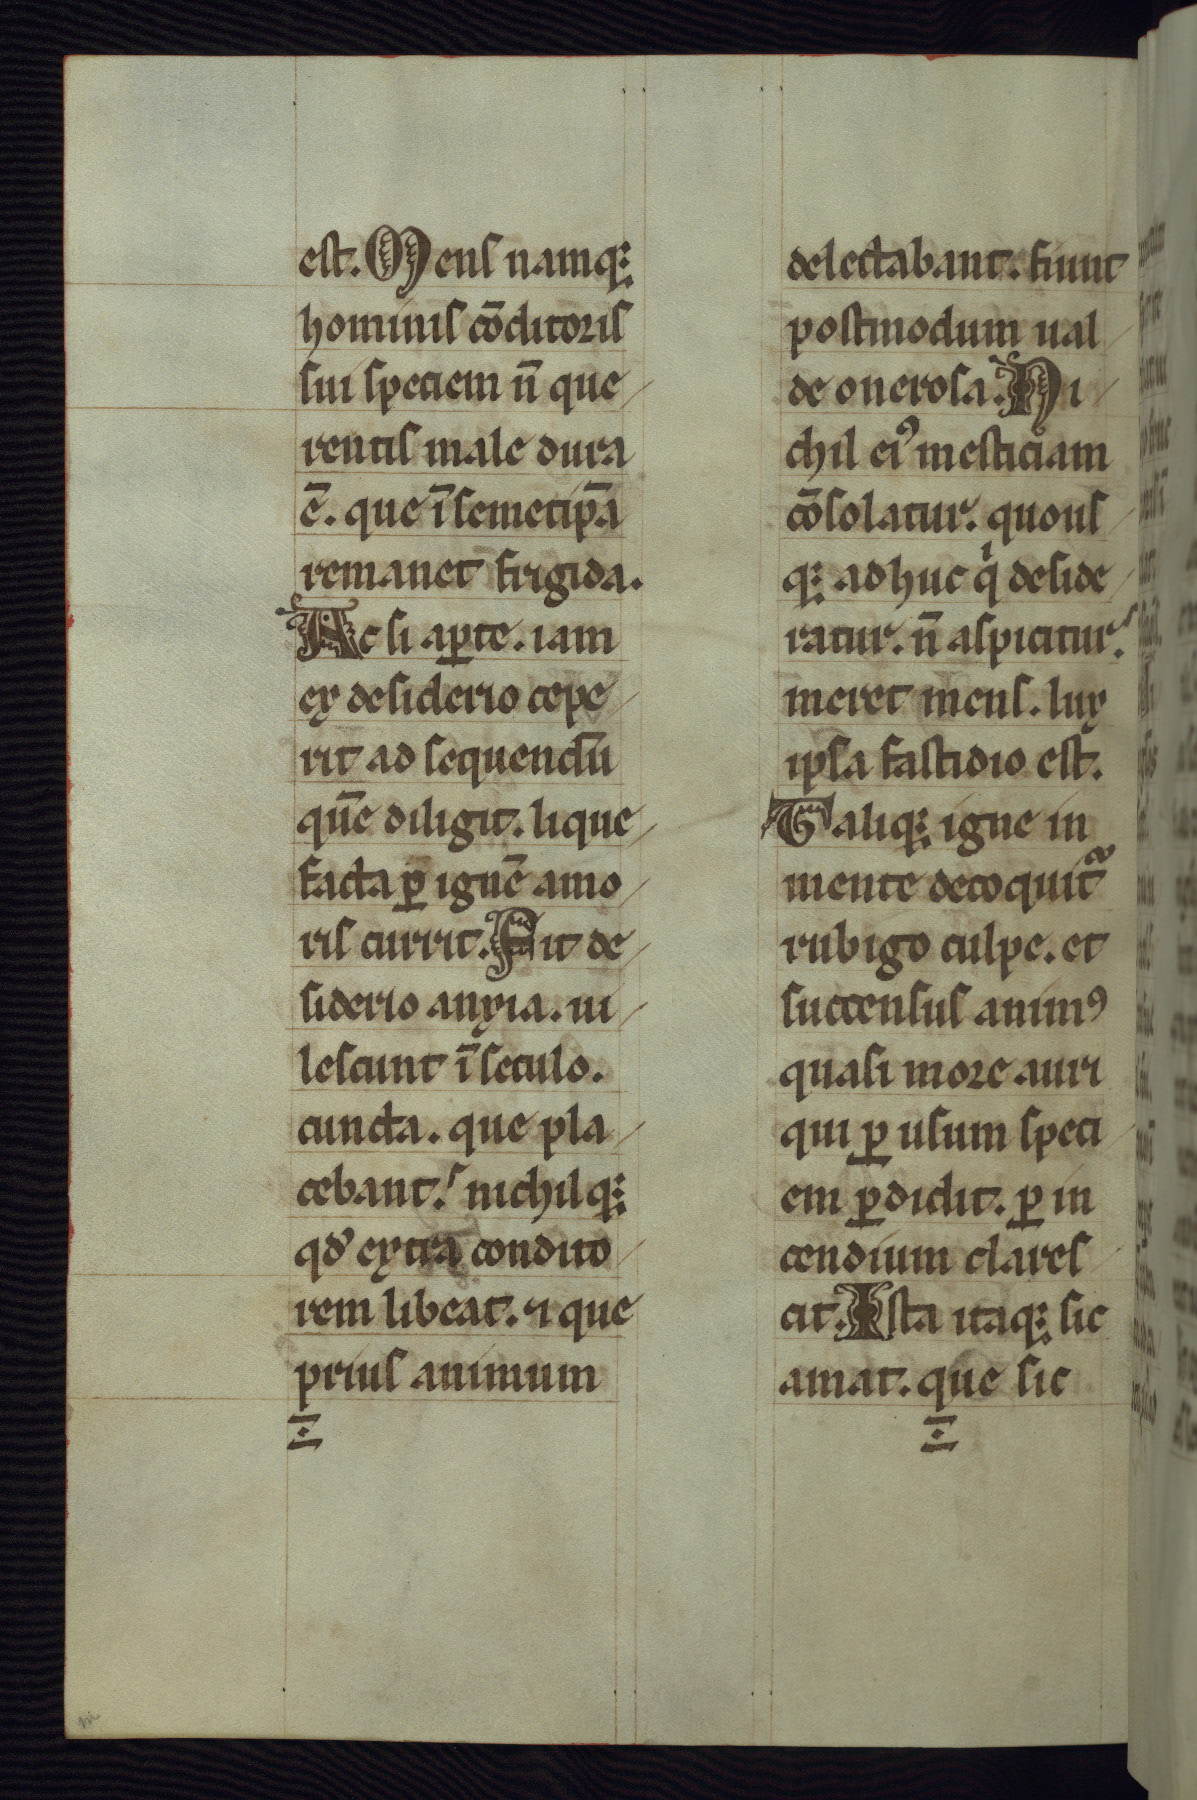 est. Mens namq;
hominis cōditoris
sui speciem n̄ que
rentis male dura
ē. que ī semetip̄a
remanet frigida.
Ac si aꝑte. iam
ex desiderio cepe
rit ad sequendū
quē diligit. lique
facta ꝑ ignē amo
ris currit. Fit de
siderio anxia. ui
lescunt ī seculo.
cuncta. que pla
cebant. nichilq;
qd' extra condito
rem libeat. ⁊ que
prius animum
delectabant. fiunt
postmodum ual
de onerosa. Ni
chil ei᷒ mesticiam
cōsolatur. quous
q; adhuc qͥ deside
ratur. n̄ aspicitur.
meret mens. lux
ipsa fastidio est.
Taliq; igne in
mente decoquit᷑
rubigo culpe. et
succensus anim᷒
quasi more auri
qui ꝑ usum speci
em ꝑdidit. ꝑ in
cendium clares
cit. Ista itaq; sic
amat. que sic